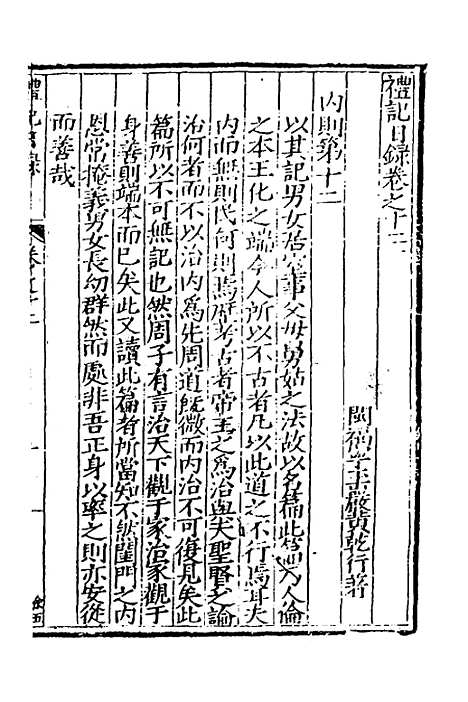 禮記日錄卷之十二
閩福寧黃乾行著
內則第十二
以其記男女居室事父母舅姑之法故以名篇此篇乃人倫
之本王化之端今人所以不古者凡以此道之不行焉耳夫
內而無則代何則焉歷考古者帝王之為治與夫聖賢之論
治何者而不以治內為先周道既微而內治不可復見矣此
篇所以不可無記也然周子有言治天下觀于家治家觀于
身善則端本而已矣此又讀此篇者所當知不然閨門之內
恩常掩義男女長幼群然而處非吾正身以率之則亦安從
而善哉
禮記日錄